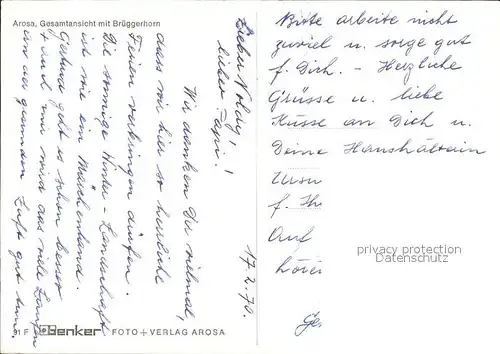 Arosa, Gesamtansicht mit Brüggerhorn
17.2.70.
Lieber Noldy!
lieber Papi!
Wir danken Dir vielmal,
dass wir hier so herrliche
Ferien verbringen dürfen.
Die sonnige Winter-Landschaft
ist wie ein Märchenland.
geht es schon besser
+ und mir wird das viele Laufen
an der gesunden Luft gut tun.
Bitte arbeite nicht
zuviel u. sorge gut
f. Dich. - Herzliche
Grüsse u. liebe
Küsse an Dich u.
Deine Haushälterin
f. Ihr
Auf
privacy protection
Datenschutz
91 F Benker FOTO + VERLAG AROSA